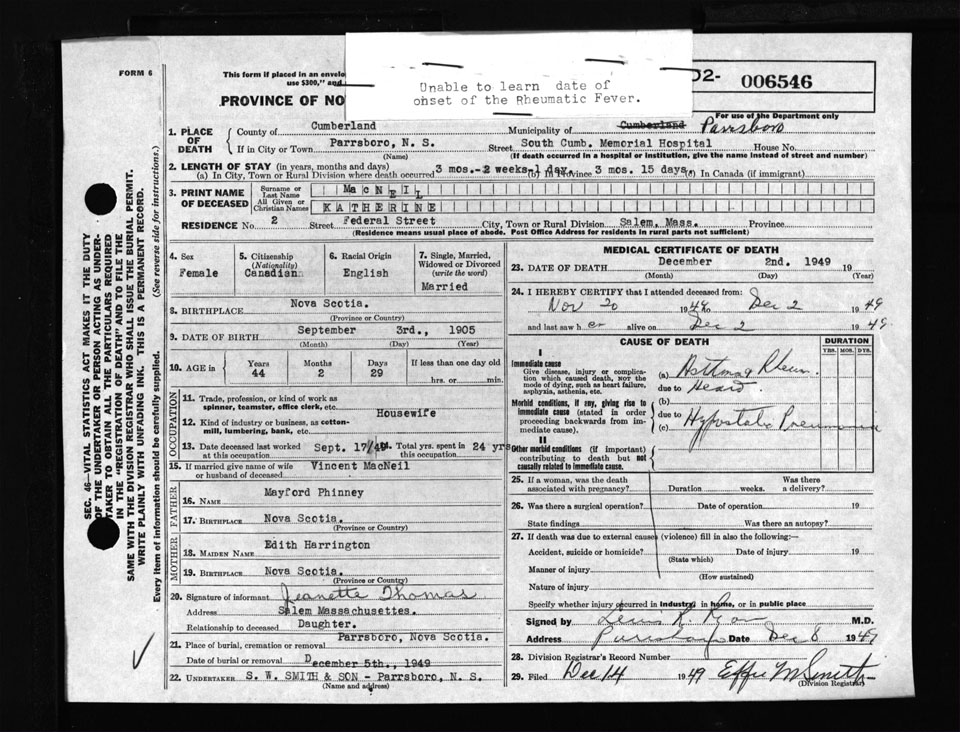 FORM 6
This form if placed in an envelo
use $300," and
PROVINCE OF NO
Unable to learn date of
onset of the Rheumatic Fever.
D2- 006546
For use of the Department only
1. PLACE OF DEATH
County of Cumberland Municipality of Cumberland Parrsboro
If in City or Town Parrsboro, N. S. Street South Cumb. Memorial Hospital House No.
(Name) (If death occurred in a hospital or institution, give the name instead of street and number)
2. LENGTH OF STAY (in years, months and days)
(a) In City, Town or Rural Division where death occurred 3 mos.-2 weeks-1 day. (b) In Province 3 mos. 15 days. (c) In Canada (if immigrant)
3. PRINT NAME OF DECEASED
Surname or Last Name MacNEIL
All Given or Christian Names KATHERINE
RESIDENCE No. 2 Street Federal Street City, Town or Rural Division Salem, Mass. Province
(Residence means usual place of abode. Post Office Address for residents in rural parts not sufficient)
4. Sex Female
5. Citizenship (Nationality) Canadian
6. Racial Origin English
7. Single, Married, Widowed or Divorced (write the word) Married
8. BIRTHPLACE Nova Scotia.
(Province or Country)
9. DATE OF BIRTH September 3rd., 1905
(Month) (Day) (Year)
10. AGE in Years 44 Months 2 Days 29 If less than one day old
hrs. or min.
OCCUPATION
11. Trade, profession, or kind of work as
spinner, teamster, office clerk, etc.
Housewife
12. Kind of industry or business, as cotton-
mill, lumbering, bank, etc.
13. Date deceased last worked at this occupation Sept. 17/49. Total yrs. spent in this occupation 24 yrs
15. If married give name of wife
or husband of deceased Vincent MacNeil
FATHER
16. Name Mayford Phinney
17. Birthplace Nova Scotia.
(Province or Country)
MOTHER
18. Maiden Name Edith Harrington
19. Birthplace Nova Scotia.
(Province or Country)
20. Signature of informant Jeanette Thomas
Address Salem Massachusettes.
Relationship to deceased Daughter.
21. Place of burial, cremation or removal Parrsboro, Nova Scotia.
Date of burial or removal December 5th., 1949
22. UNDERTAKER S. W. SMITH & SON - Parrsboro, N. S.
(Name and address)
MEDICAL CERTIFICATE OF DEATH
23. DATE OF DEATH December 2nd. 1949 19
(Month) (Day) (Year)
24. I HEREBY CERTIFY that I attended deceased from:
Nov 20 1949 to Dec 2 1949
and last saw h er alive on Dec 2 1949
CAUSE OF DEATH
DURATION
YRS. MOS. DYS.
I
Immediate cause
Give disease, injury or complica-
tion which caused death, NOT the
mode of dying, such as heart failure,
asphyxia, asthenia, etc.
(a) Rheum.
due to Heart.
Morbid conditions, if any, giving rise to
immediate cause (stated in order
proceeding backwards from im-
mediate cause).
(b)
due to
(c) Hypostatic Pneumonia
II
Other morbid conditions (if important)
contributing to death but not
causally related to immediate cause.
25. If a woman, was the death
associated with pregnancy? Duration weeks. Was there
a delivery?
26. Was there a surgical operation? Date of operation 19
State findings Was there an autopsy?
27. If death was due to external causes (violence) fill in also the following:—
Accident, suicide or homicide? Date of injury 19
(State which)
Manner of injury
(How sustained)
Nature of injury
Specify whether injury occurred in industry, in home, or in public place
Signed by R. Ryan M.D.
Address Parrsboro Date Dec 8 1949
28. Division Registrar's Record Number
29. Filed Dec 14 1949 Effie M Smith
(Division Registrar)
SEC. 46—VITAL STATISTICS ACT MAKES IT THE DUTY
OF THE UNDERTAKER OR PERSON ACTING AS UNDER-
TAKER TO OBTAIN ALL THE PARTICULARS REQUIRED
IN THE "REGISTRATION OF DEATH" AND TO FILE THE
SAME WITH THE DIVISION REGISTRAR WHO SHALL ISSUE THE BURIAL PERMIT.
WRITE PLAINLY WITH UNFADING INK. THIS IS A PERMANENT RECORD.
Every item of information should be carefully supplied. (See reverse side for instructions.)